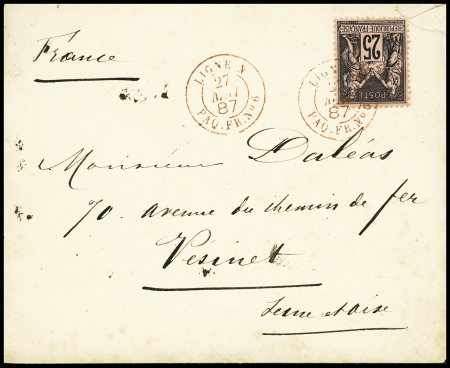 France
LIGNE N
27
MAI
87
PAQ. FR. No 6
LIGNE N
MAI
87
PAQ. FR. No 6
25
REPUBLIQUE FRANÇAISE
POSTE
Monsieur Daléas
70. avenue du chemin de fer
Vesinet
Seine et Oise